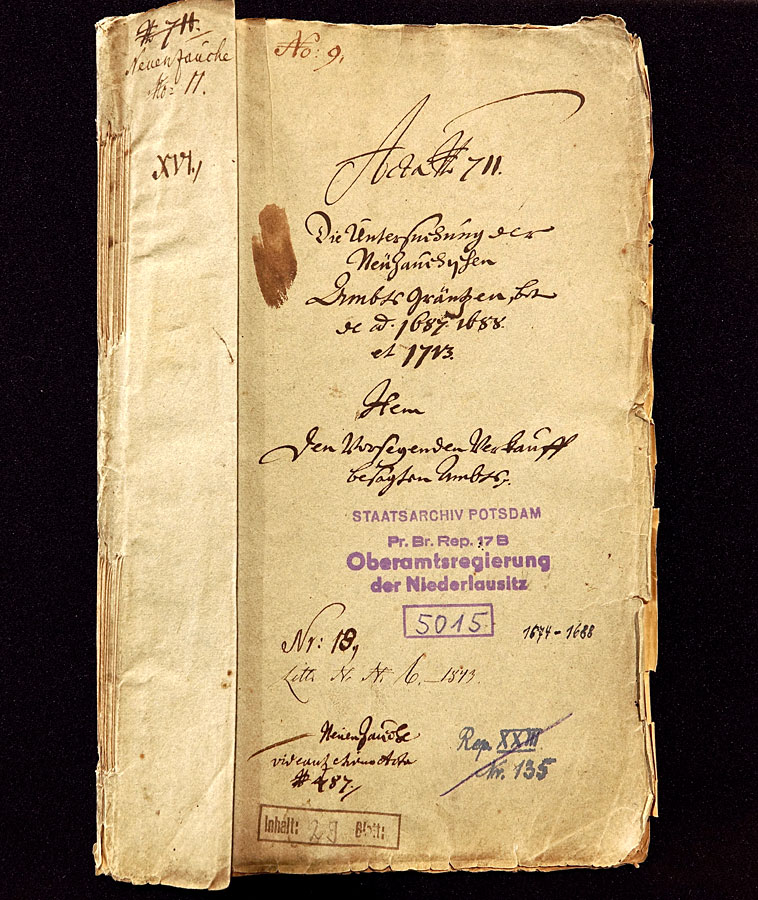 # 711.
Neuenzauche
No: 11.
XVI,
No: 9,
Acta # 711.
Die Untersuchung der
Neuzauchischen
Ambts Gräntzen, bet
de ao. 1687. 1688.
et 1713.
Item
Den Vorseyenden Verkauff
besagten Ambts,
STAATSARCHIV POTSDAM
Pr. Br. Rep. 17 B
Oberamtsregierung
der Niederlausitz
5015
1674-1688
Nr: 18,
Litt. N. N. 6. 1843.
Neuenzauche
Acta
# 487,
Rep. XXIII
Nr. 135
Inhalt: 29 Blatt: